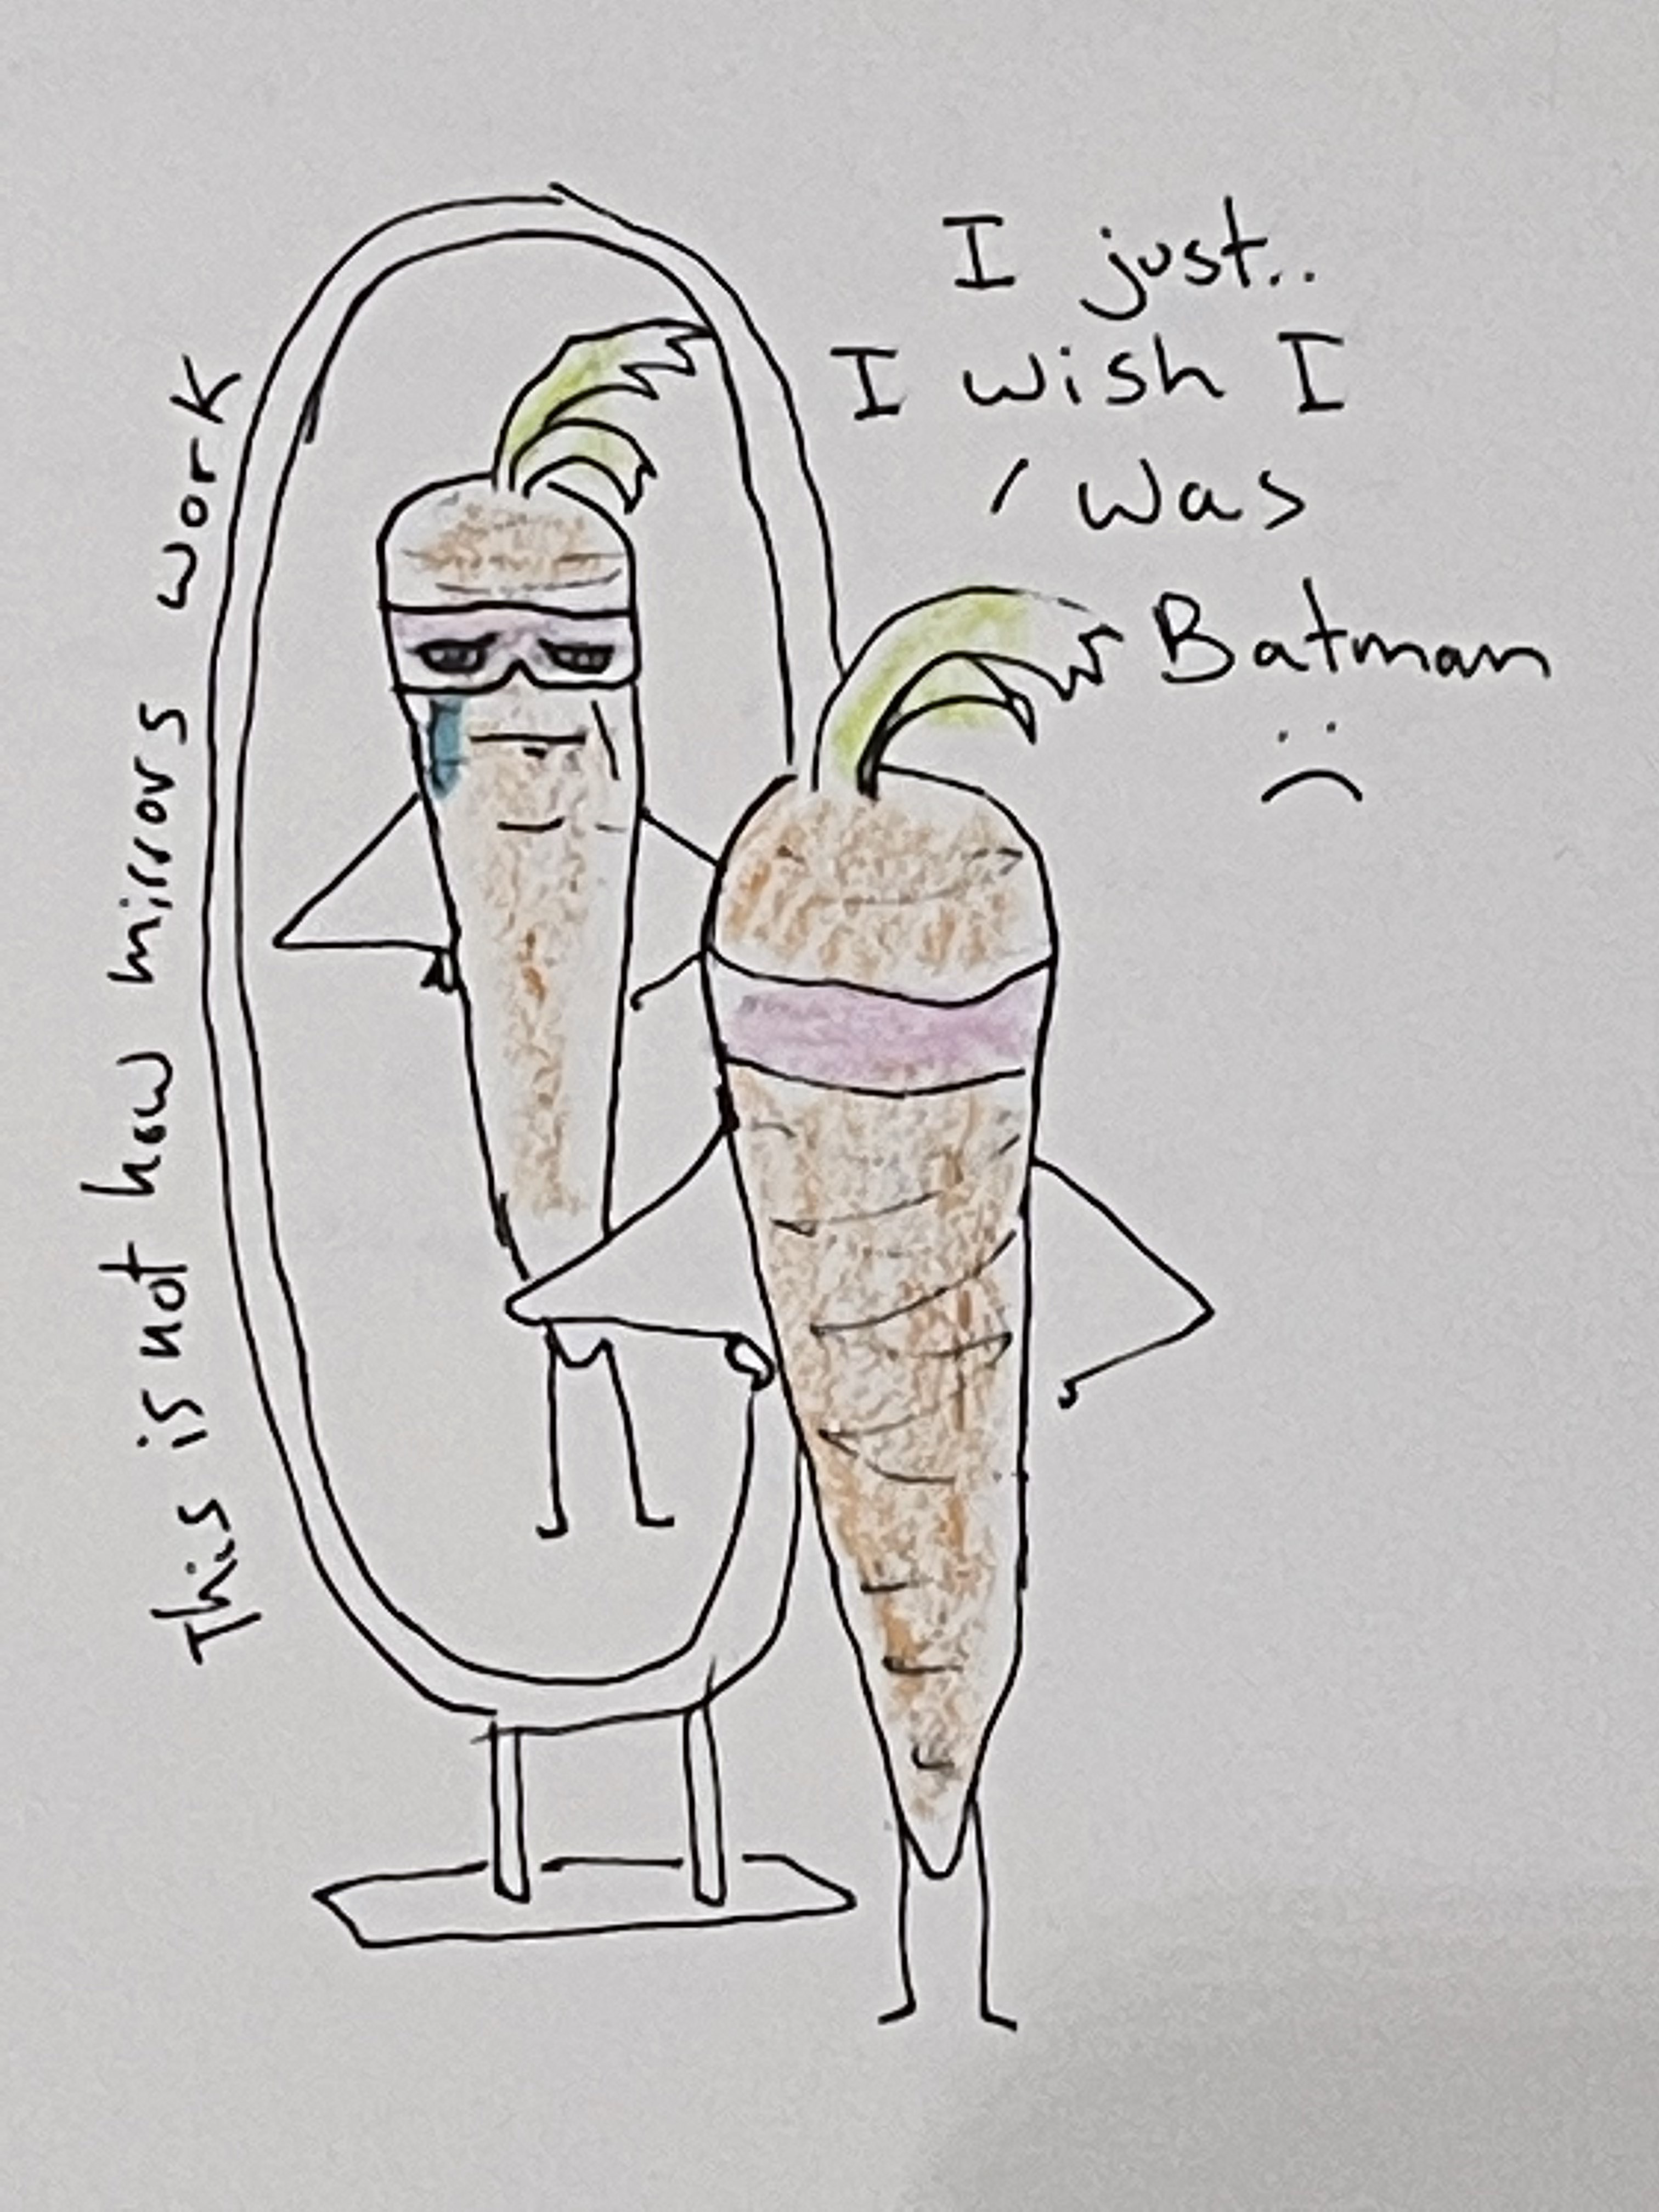 This is not how mirrors work
I just..
I wish I
was
Batman
:(